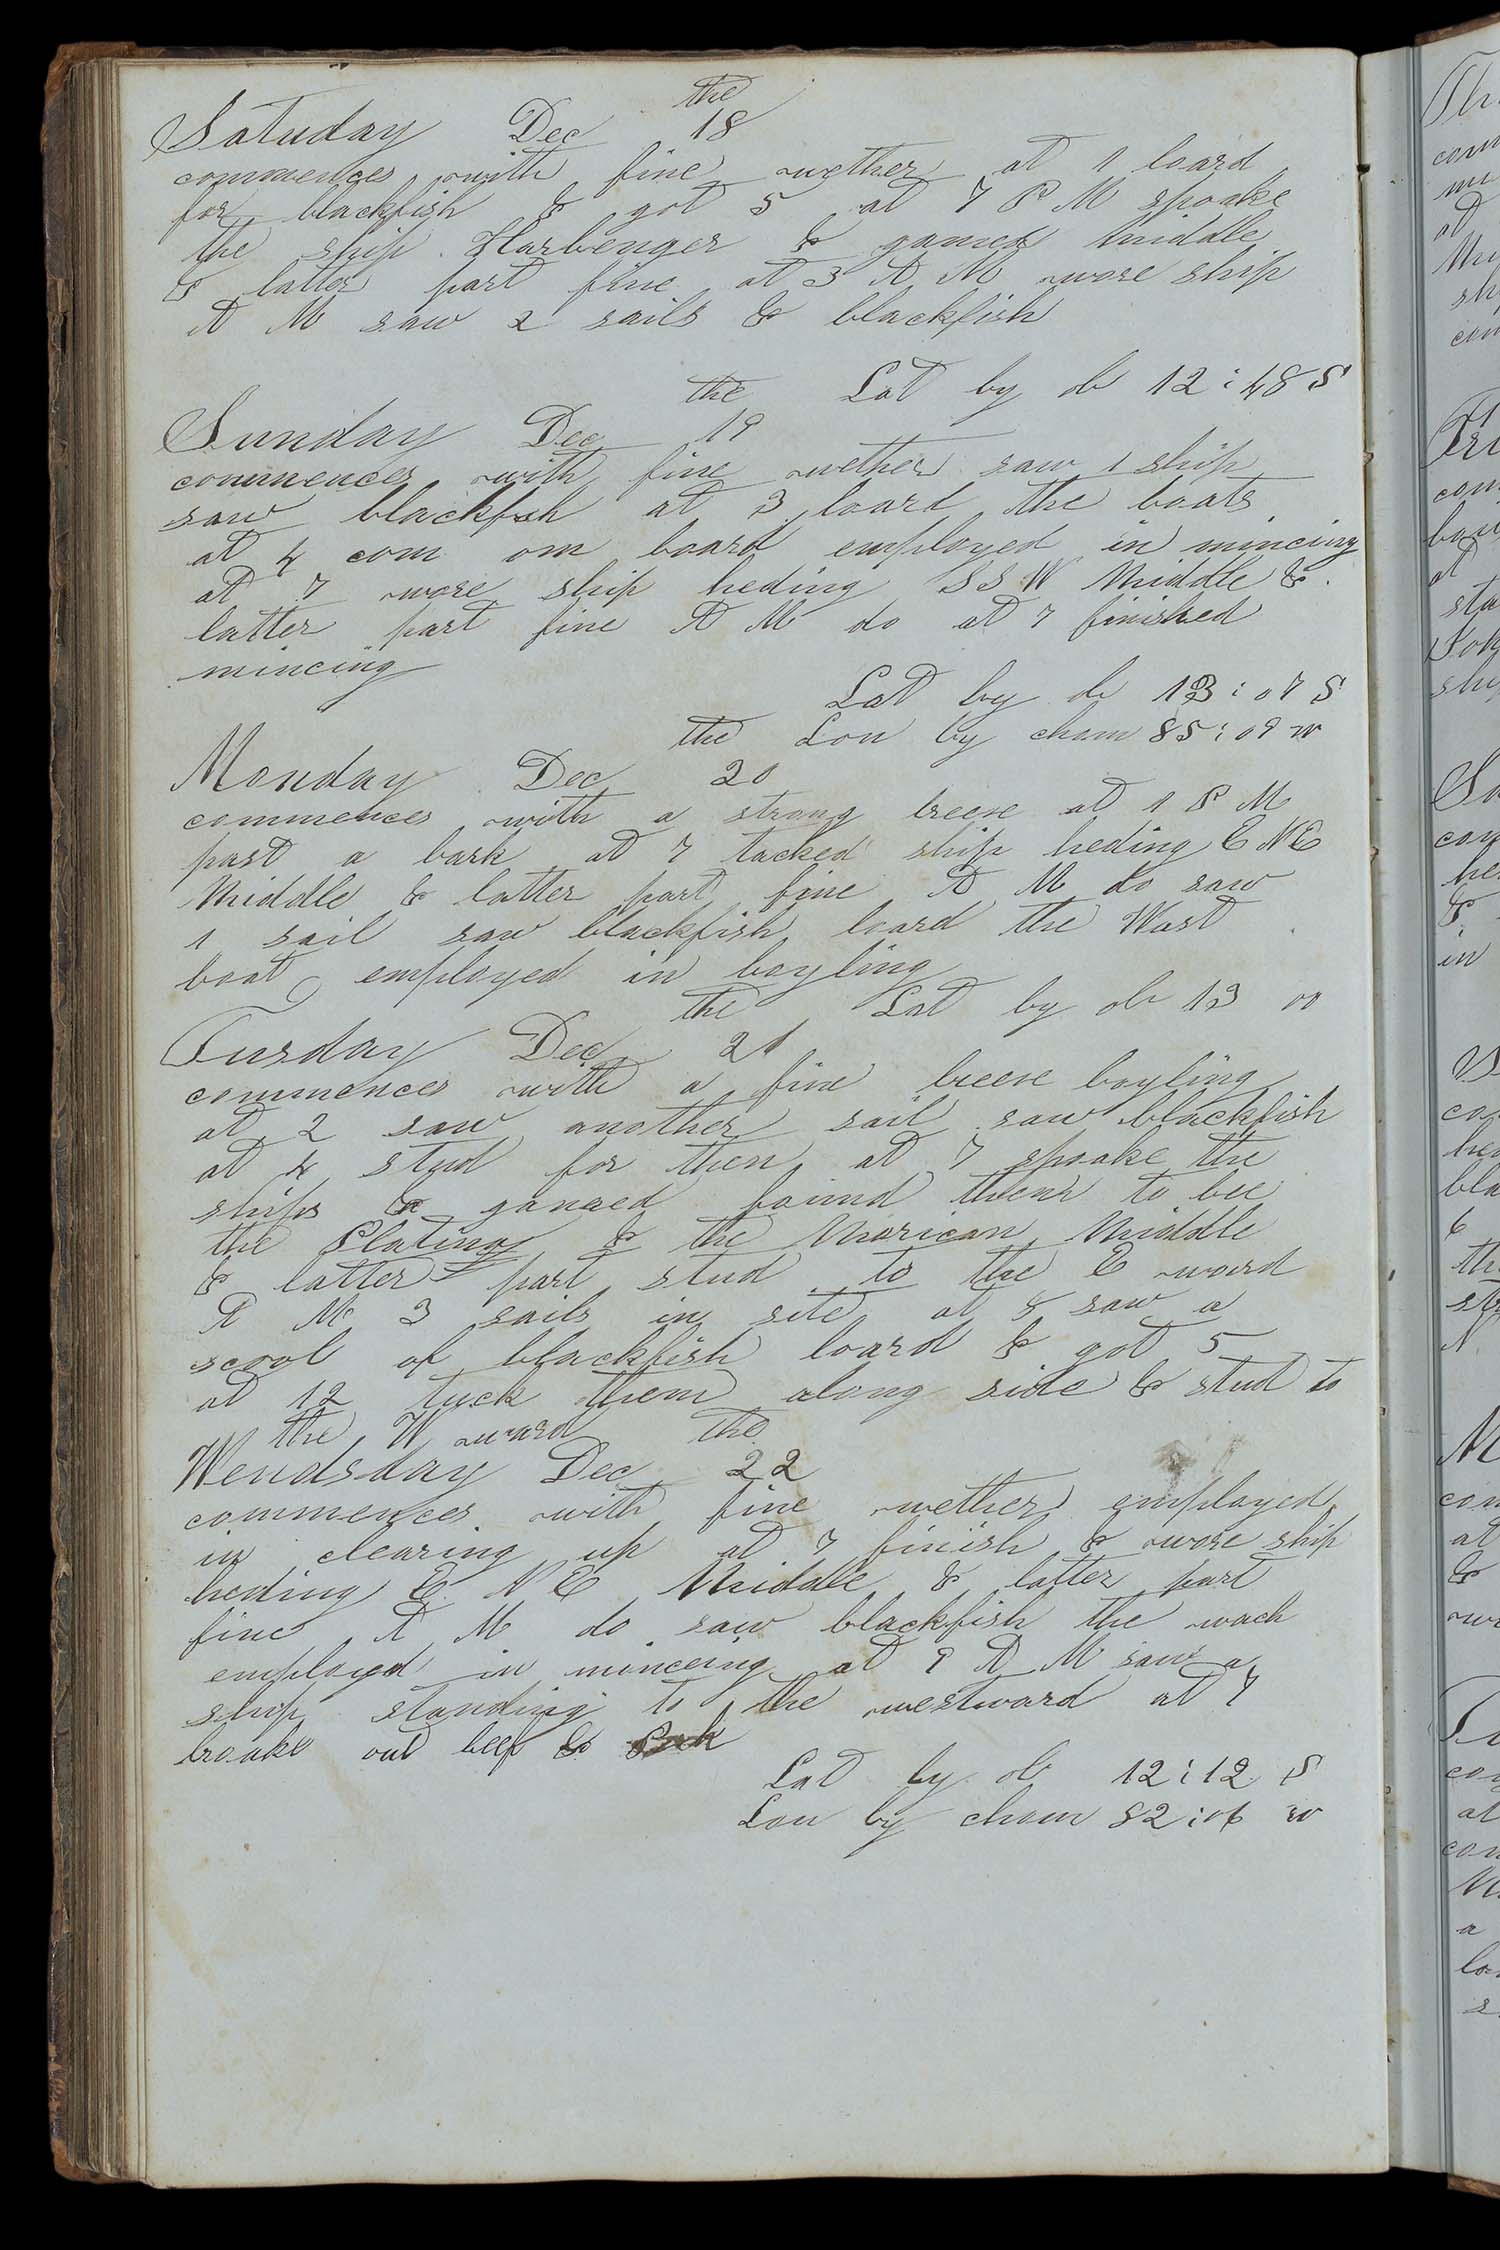 Satuday Dec the 18
commences with fine wether at 1 loard
for blackfish & got 5 at 7 P M spoake
the ship Harbenger & gamed middle
& latter part fine at 3 A M wore ship
A M saw 2 sails & blackfish
Lat by ob 12:48 S
Sunday Dec the 19
commences with fine wether saw 1 ship
saw blackfish at 3 loard the boats
at 4 com om board employed in mincing
at 7 wore ship heding S S W Middle &
latter part fine A M do at 7 finished
mincing
Lat by ob 13:07 S
Lon by chom 85:09 w
Monday Dec the 20
commences with a strong breeve at 1 P M
past a bark at 7 tacked ship heding E N E
Middle & latter part fine A M do saw
1 sail saw blackfish loard the Wast
boat employed in boyling
Lat by ob 13 00
Tusday Dec the 21
commences with a fine breeve boyling
at 2 saw another sail saw blackfish
at 4 stud for then at 7 spoake the
ships & gamed found them to bee
the Platina & the Morican Middle
& latter part stud to the E ward
A M 3 sails in site at 8 saw a
scool of blackfish loard & got 5
at 12 tuck them along side & stud to
the W ward
Wendsday Dec the 22
commences with fine wether employed
in clearing up at 7 finish & wore ship
heding E N E Middle & latter part
fine A M do saw blackfish the wach
employed in minceing at 9 A M saw a
ship standing to the westward at 7
broake out beef & Pork
Lat by ob 12:12 S
Lon by chom 82:06 w